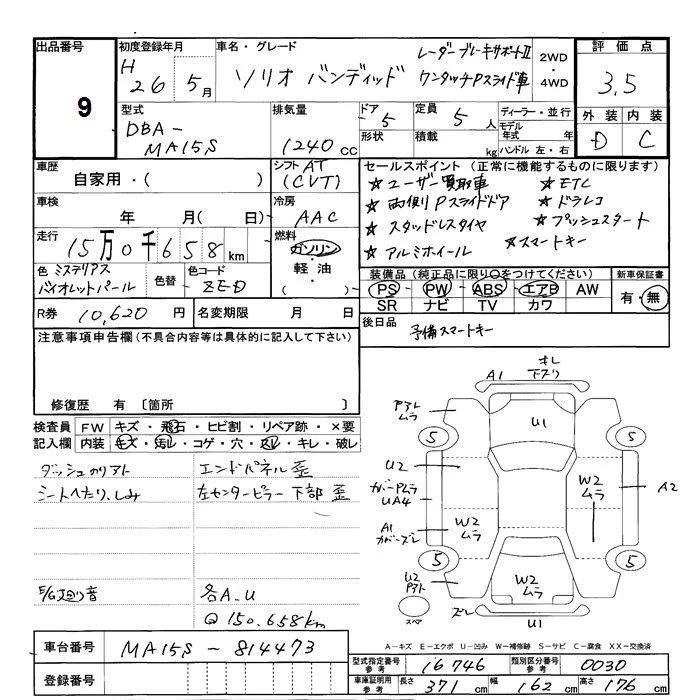 出品番号
9
初度登録年月
H 26 5月
車名・グレード
ソリオ バンディッド
レーダーブレーキサポートⅡ
ワンタッチPスライド車
2WD
・
4WD
評価点
3.5
外装 内装
D C
型式
DBA-
MA15S
排気量
1240 cc
ドア 5
形状
定員 5 人
積載 kg
ディーラー・並行
モデル年式 年
ハンドル 左・右
車歴
自家用・( )
シフト AT
(CVT)
車検
年 月(日)
冷房
AAC
走行
15万0千658km
燃料
ガソリン
軽油・
( )
色 ミステリアス
バイオレットパール
色替
色コード
ZED
R券 10,620 円
名変期限 月 日
セールスポイント(正常に機能するものに限ります)
☆ユーザー買取車 ☆ETC
☆両側Pスライドドア ☆ドラレコ
☆スタッドレスタイヤ ☆プッシュスタート
☆アルミホイール ☆スマートキー
装備品(純正品に限り○をつけてください)
PS PW ABS エアB AW
SR ナビ TV カワ
新車保証書
有・無
後日品
予備スマートキー
注意事項申告欄(不具合内容等は具体的に記入して下さい)
修復歴 有〔箇所 〕
検査員 FW キズ・飛石・ヒビ割・リペア跡・×要
記入欄 内装 キズ・汚レ・コゲ・穴・スレ・キレ・破レ
ダッシュカリアト
シートへたり、しみ
エンドパネル歪
左センターピラー下部歪
E/G廻り音
各A.U
Q 150.658km
A1
オレ
下スリ
U1
アストレ
ムラ
5
5
U2
カバーPムラ
UA4
A1
カバーズレ
W2
ムラ
W2
ムラ
A2
5
5
U2
アスト
W2
ムラ
スペア
ズレ
U1
A-キズ E-エクボ U-凹み W-補修跡 S-サビ C-腐食 XX-交換済
車台番号 MA15S-814473
登録番号
型式指定番号 参考 16746
類別区分番号 参考 0030
車庫証明用 参考 長さ 371cm 幅 162cm 高さ 176cm